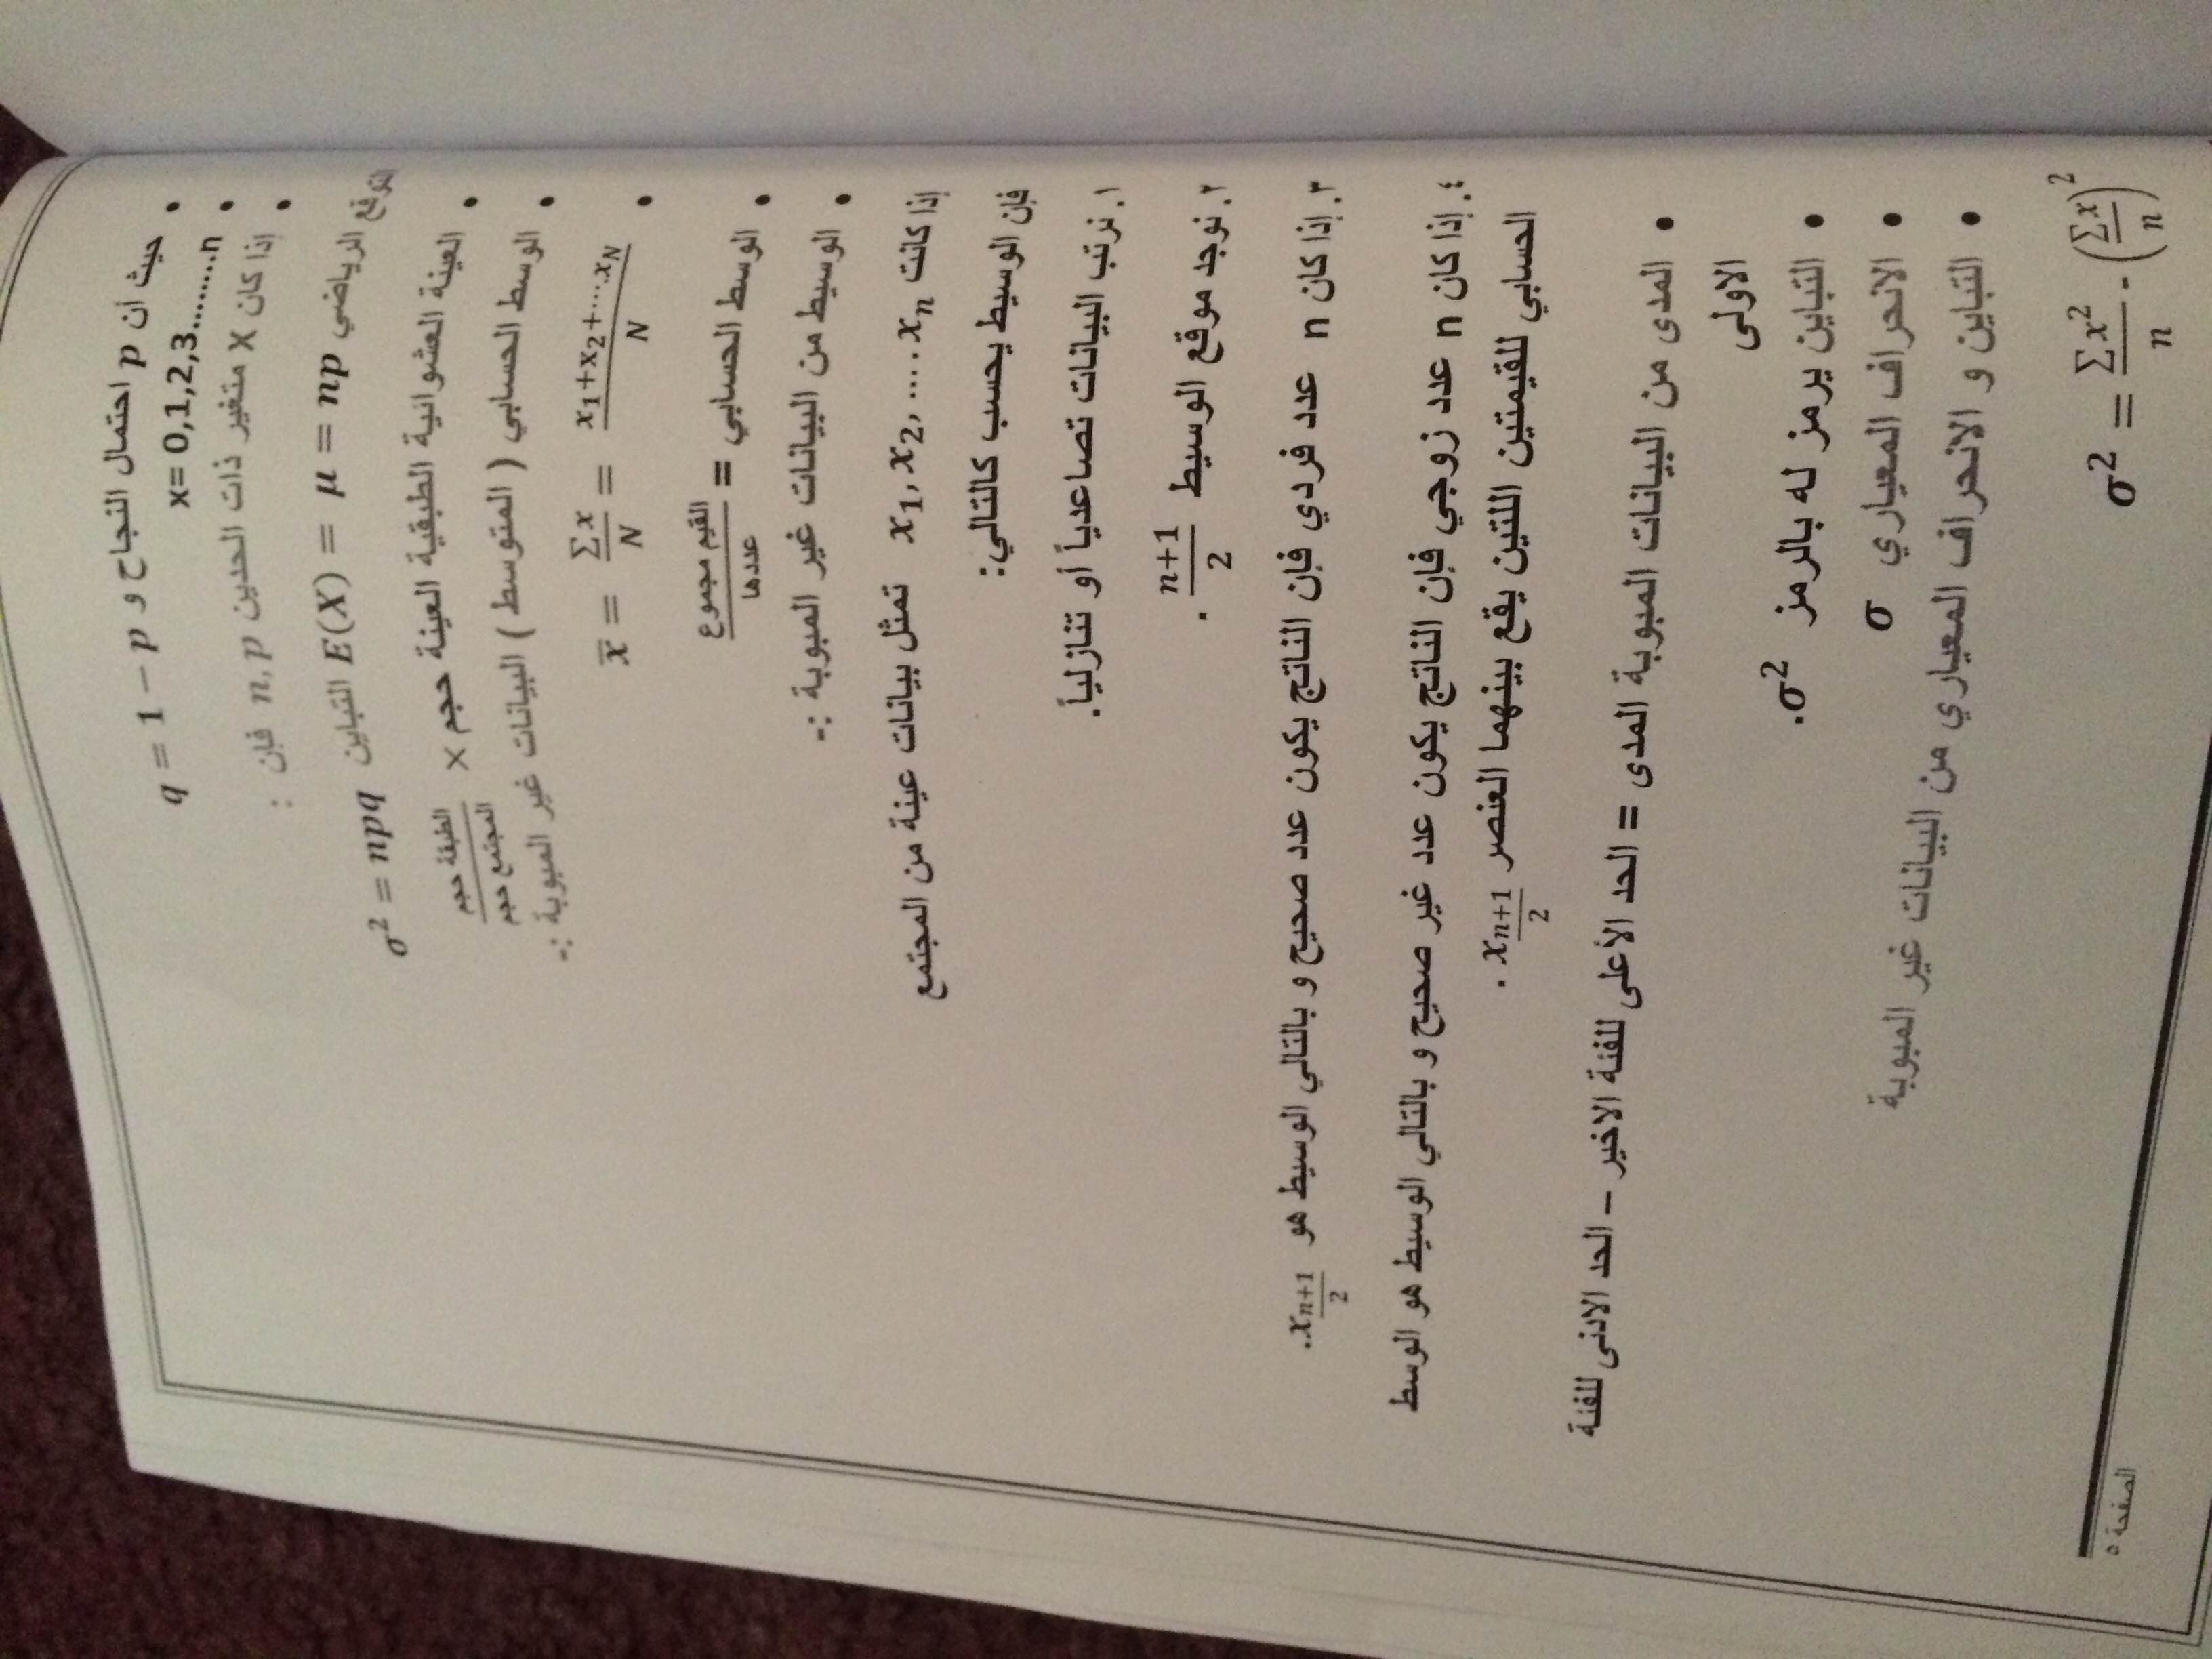 حيث أن p احتمال النجاح و q = 1 − p
x= 0,1,2,3.........n
إذا كان X متغير ذات الحدين n, p فإن :
التوقع الرياضي E(X) = μ = np التباين σ² = npq
العينة العشوائية الطبقية العينة حجم × الطبقة حجم / المجتمع حجم
الوسط الحسابي ( المتوسط ) البيانات غير المبوبة :-
x̅ = Σx / N = x₁+x₂+....x_N / N
الوسط الحسابي = القيم مجموع / عددها
الوسيط من البيانات غير المبوبة :-
إذا كانت x₁, x₂, .... xₙ تمثل بيانات عينة من المجتمع
فإن الوسيط يحسب كالتالي:
١. نرتب البيانات تصاعدياً أو تنازلياً.
٢. نوجد موقع الوسيط n+1 / 2 .
٣. إذا كان n عدد فردي فإن الناتج يكون عدد صحيح و بالتالي الوسيط هو x_(n+1)/2 ..
٤. إذا كان n عدد زوجي فإن الناتج يكون عدد غير صحيح و بالتالي الوسيط هو الوسط
الحسابي للقيمتين اللتين يقع بينهما العنصر x_(n+1)/2 .
المدى من البيانات المبوبة المدى = الحد الأعلى للفئة الاخير – الحد الادنى للفئة
الاولى
التباين يرمز له بالرمز σ².
الانحراف المعياري σ
التباين و الانحراف المعياري من البيانات غير المبوبة
σ² = Σx² / n - (Σx / n)²
الصفحة ٥